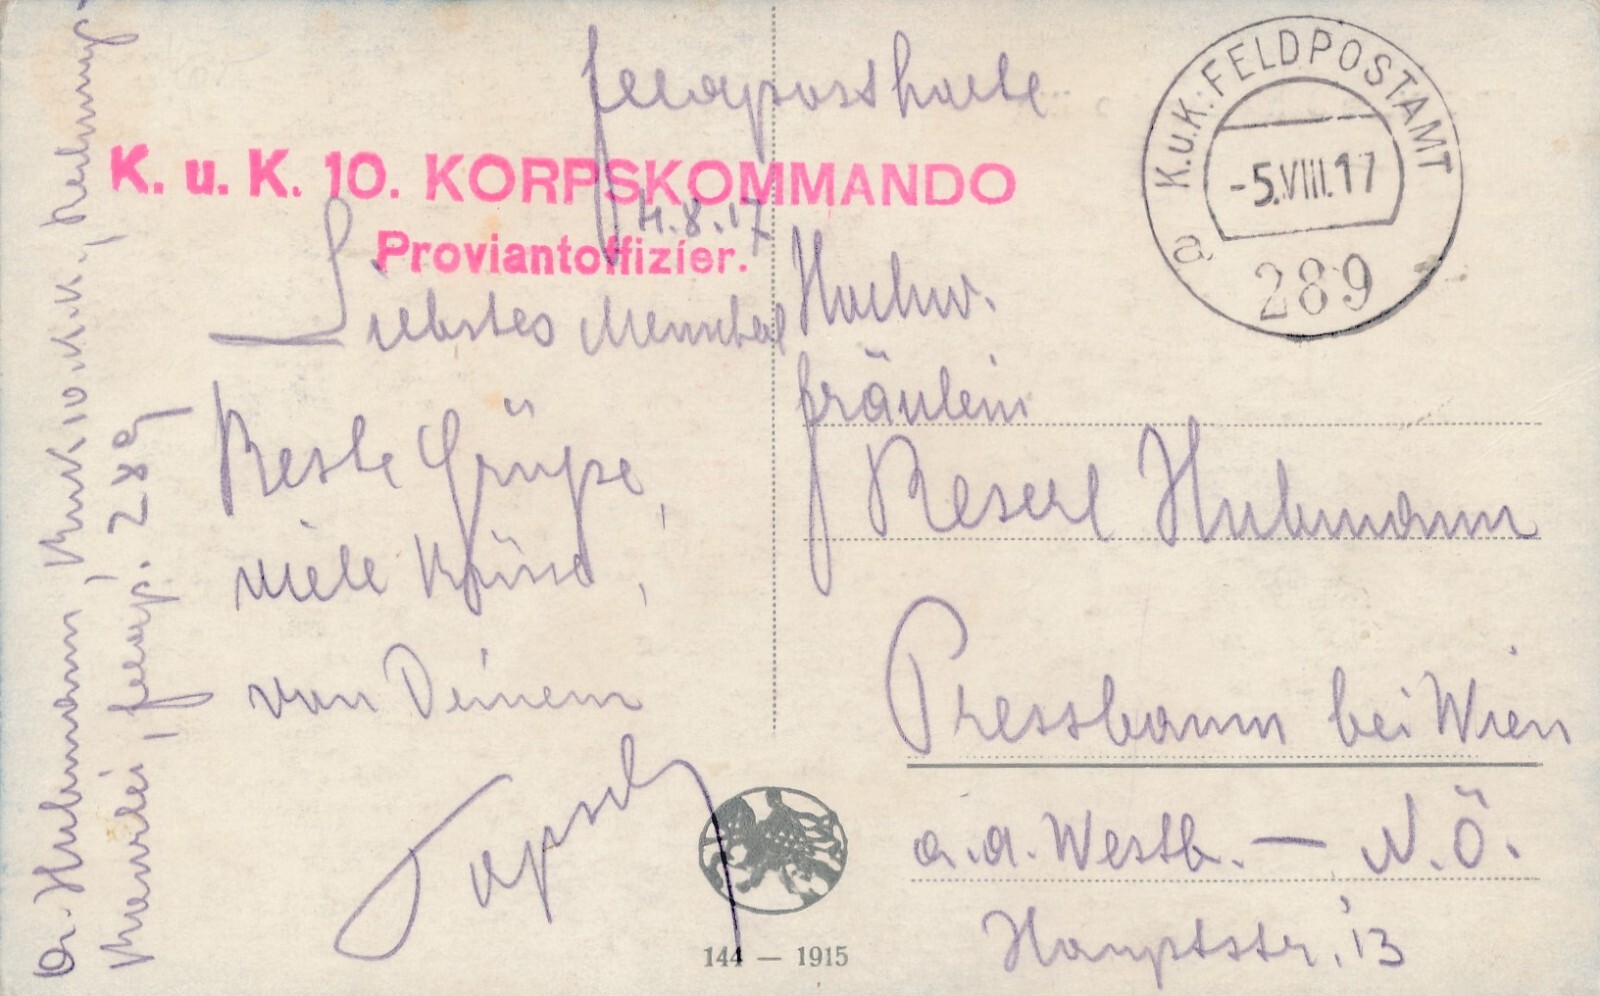 Feldpostkarte
K. u. K. 10. KORPSKOMMANDO
Proviantoffizier.
4.8.17
Liebstes
Beste Grüße,
viele Küsse,
von Deinem
K.u.K. FELDPOSTAMT
-5.VIII.17
a
289
Hochw.
Fräulein
Reserl Hubmann
Pressbaum bei Wien
a.d. Westb. — N.Ö.
Hauptstr. 13
144 — 1915
Dr. Hubmann, KuK 10. K.K.,
Kanzlei, Feldp. 289